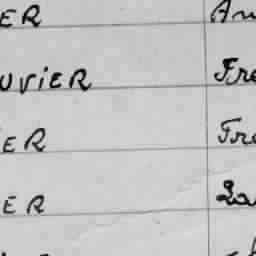 ER An
UVIER Fre
ER Fra
ER La